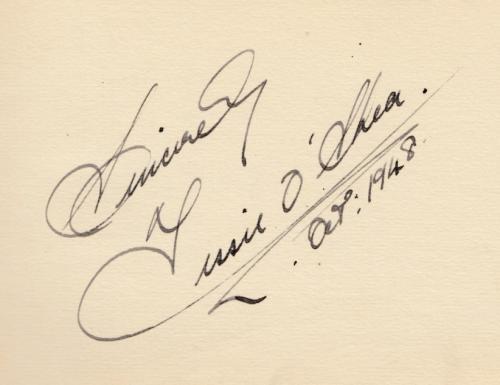 Sincerely
Tessie O'Shea.
Oct. 1948.